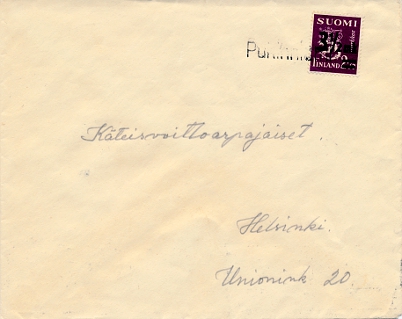 SUOMI
FINLAND
Käteisvoittoarpajaiset.
Helsinki.
Unionink 20